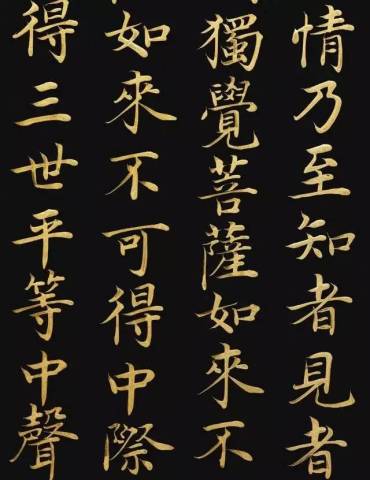 情乃至知者見者
獨覺菩薩如來不
如來不可得中際
得三世平等中聲